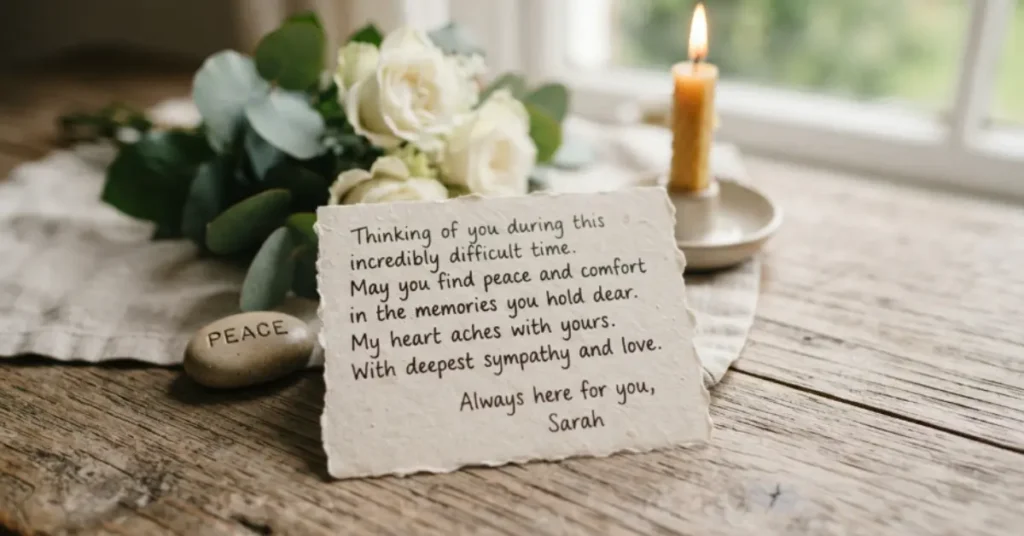 Thinking of you during this
incredibly difficult time.
May you find peace and comfort
in the memories you hold dear.
My heart aches with yours.
With deepest sympathy and love.
Always here for you,
Sarah
PEACE